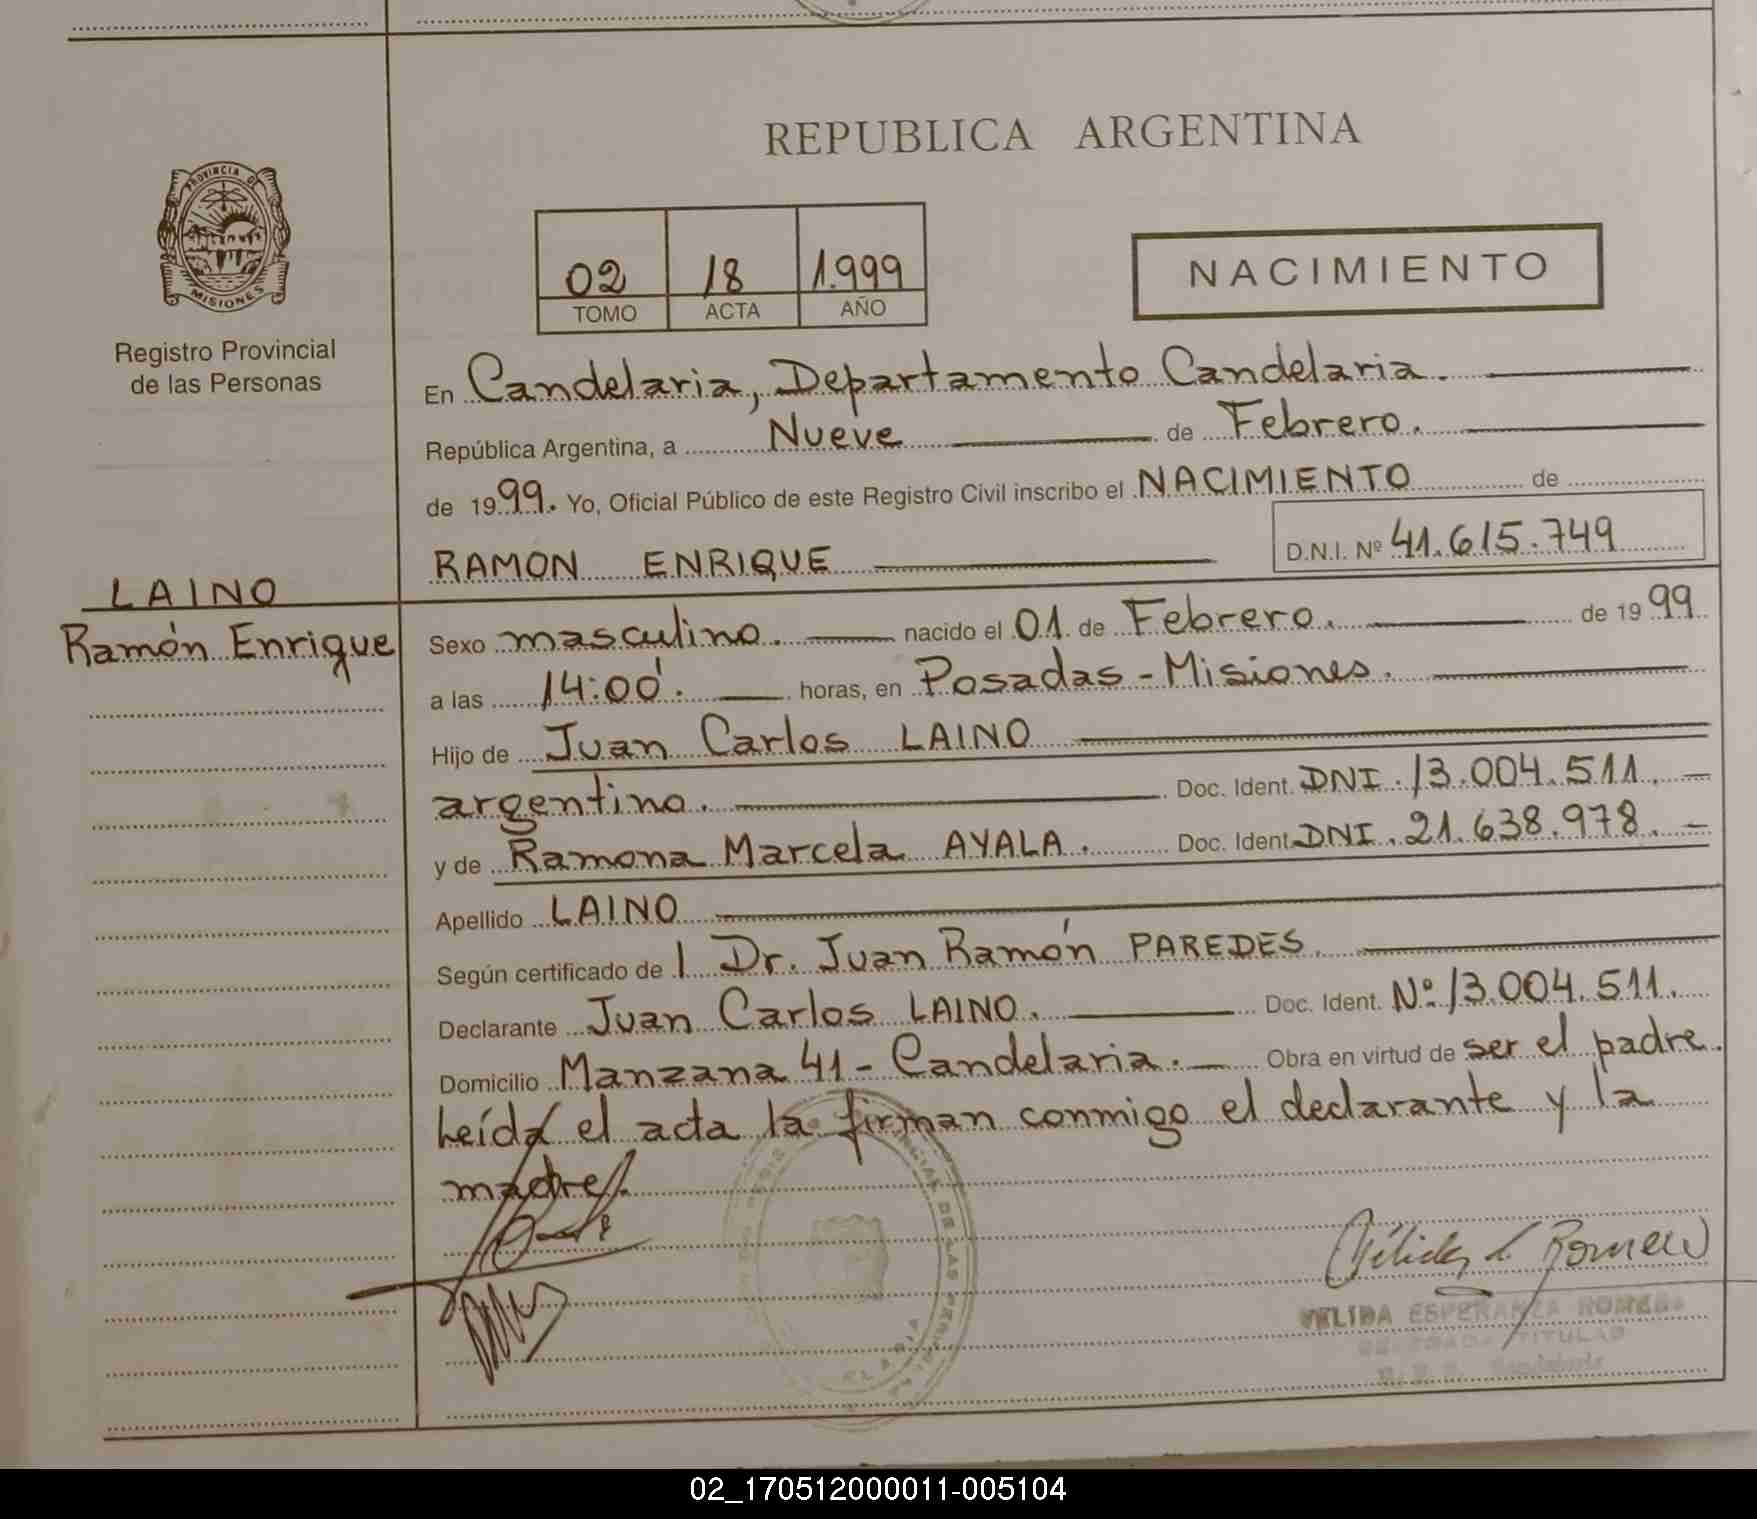 REPUBLICA ARGENTINA
PROVINCIA DE
MISIONES
Registro Provincial
de las Personas
02 18 1.999
TOMO ACTA AÑO
NACIMIENTO
En Candelaria, Departamento Candelaria.
República Argentina, a Nueve de Febrero.
de 1999. Yo, Oficial Público de este Registro Civil inscribo el NACIMIENTO de
RAMON ENRIQUE D.N.I. Nº 41.615.749
LAINO
Ramón Enrique
Sexo masculino. nacido el 01 de Febrero. de 1999
a las 14:00. horas, en Posadas - Misiones.
Hijo de Juan Carlos LAINO
argentino. Doc. Ident. DNI. 13.004.511.
y de Ramona Marcela AYALA. Doc. Ident. DNI. 21.638.978.
Apellido LAINO
Según certificado de l Dr. Juan Ramón PAREDES.
Declarante Juan Carlos LAINO. Doc. Ident. Nº 13.004.511.
Domicilio Manzana 41 - Candelaria. Obra en virtud de ser el padre.
Leída el acta la firman conmigo el declarante y la
madre.
DE LAS
NELIDA ESPERANZA ROMERO
TITULAR
02_170512000011-005104